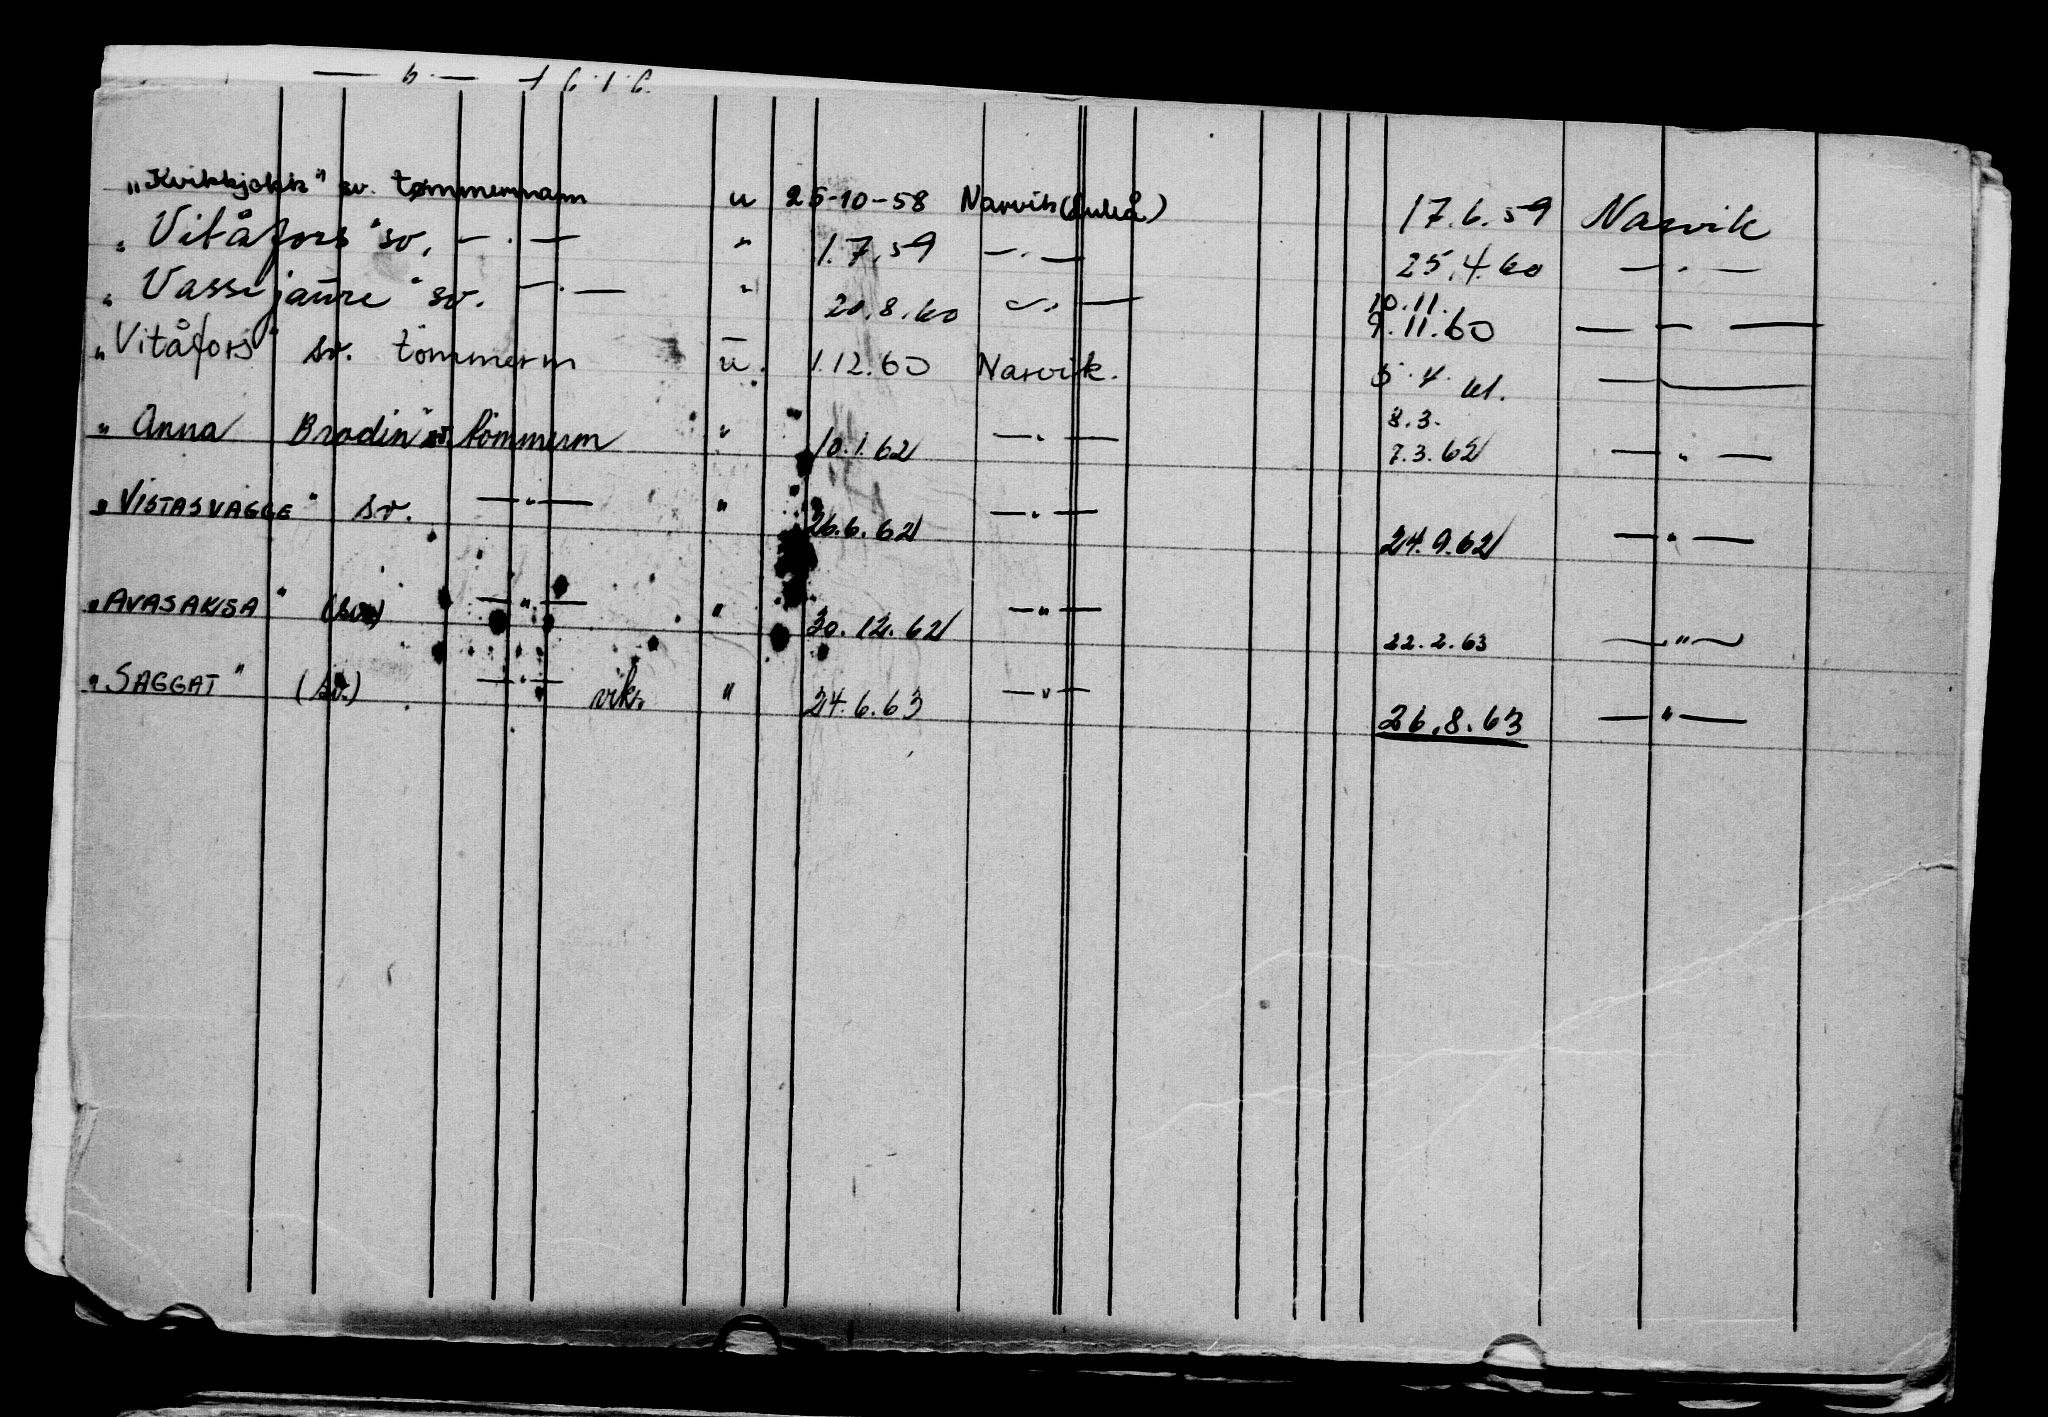 — " — 1616.
„Kvikkjokk" sv. tømmermann u 25-10-58 Narvik (Luleå) 17.6.59 Narvik
„Vitåfors" sv. — " — " 1.7.59 — " — 25.4.60 — " —
„Vassijaure" sv. — " — " 20.8.60 — " — 10.11. 9.11.60 — " —
„Vitåfors" sv. tömmerm u. 1.12.60 Narvik. 5.4.61. — " —
„Anna Brodin" sv. tömmerm " 10.1.62 — " — 8.3. 7.3.62 — " —
„VISTASVAGGE" sv. — " — " 26.6.62 — " — 24.9.62 — " —
„AVASAKSA" (sv.) — " — " 30.12.62 — " — 22.2.63 — " —
„SAGGAT" (sv.) — " — vik. " 24.6.63 — " — 26.8.63 — " —